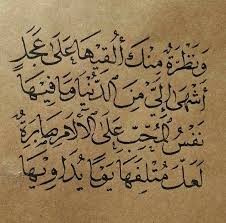 وَنَظْرَةٌ مِنْكَ أُلْقِيهَا عَلَى عَجَلٍ
أَشْهَى إِلَيَّ مِنَ الدُّنْيَا وَمَا فِيهَا
نَفْسُ الْمُحِبِّ عَلَى الْآلَامِ صَابِرَةٌ
لَعَلَّ مُتْلِفَهَا يَوْمًا يُدَاوِيهَا